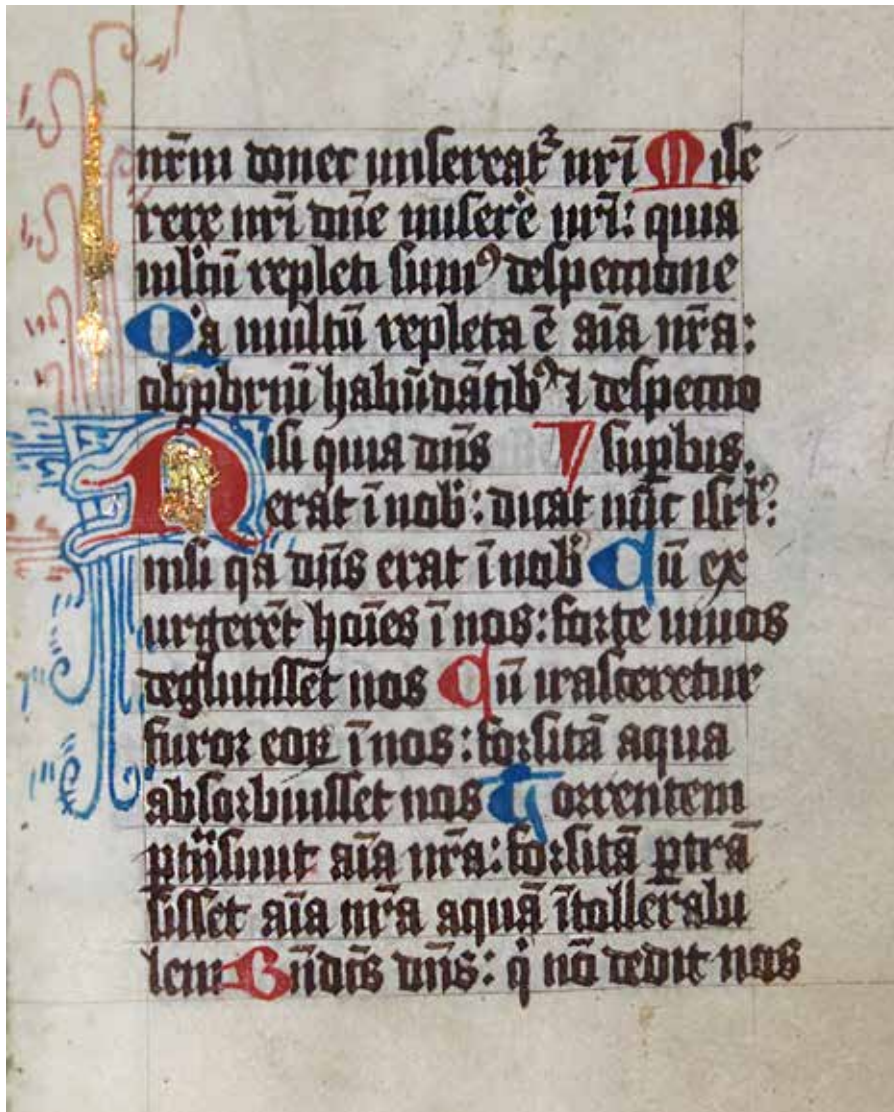 nr̄m donec misereat᷑ nr̄i Mise
rere nr̄i dn̄e miser̄e nr̄i: quia
ml̄tū repleti sumꝰ despectione
Qꝛa multū repleta ē aīa nr̄a:
obp̱briū habūdātibꝰ ⁊ despectio
Nisi quia dn̄s ⁊ suꝑbis.
erat ī nob̄: dicat nūc isrl̄ꝰ:
nisi qꝛa dn̄s erat ī nob̄ Cū ex
urgerēt hoīes ī nos: forte viuos
deglutisset nos Cū irasceretur
furor eoꝝ ī nos: forsitā aqua
absorbuisset nos Torrentem
ꝑtͥsiuit aīa nr̄a: forsitā ꝑtrā
sisset aīa nr̄a aquā ītollerabi
lem Bn̄dcs̄ dn̄s: qͥ nō dedit nos